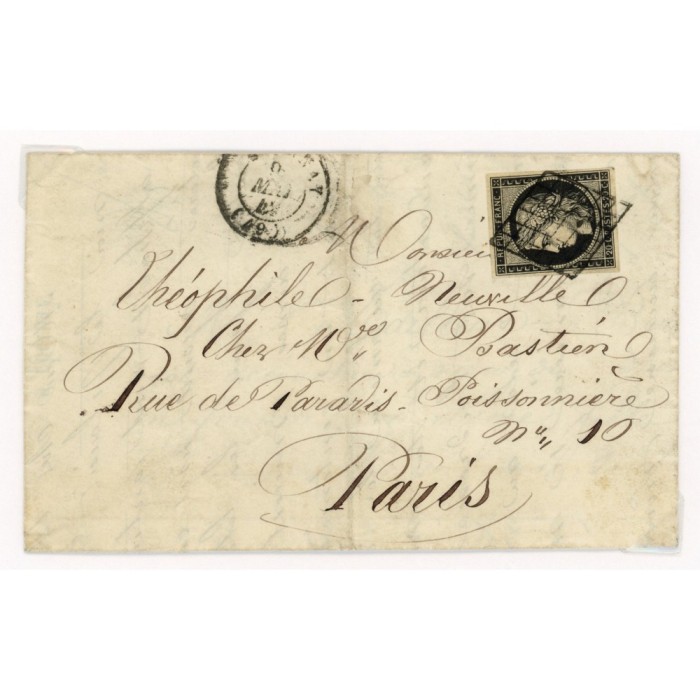 MAI
(49)
REPUB. FRANC.
20 POSTES 20
Monsieur
Théophile - Neuville
Chez Mr
Bastién
Rue de Paradis - Poissonnière
N° 10
Paris